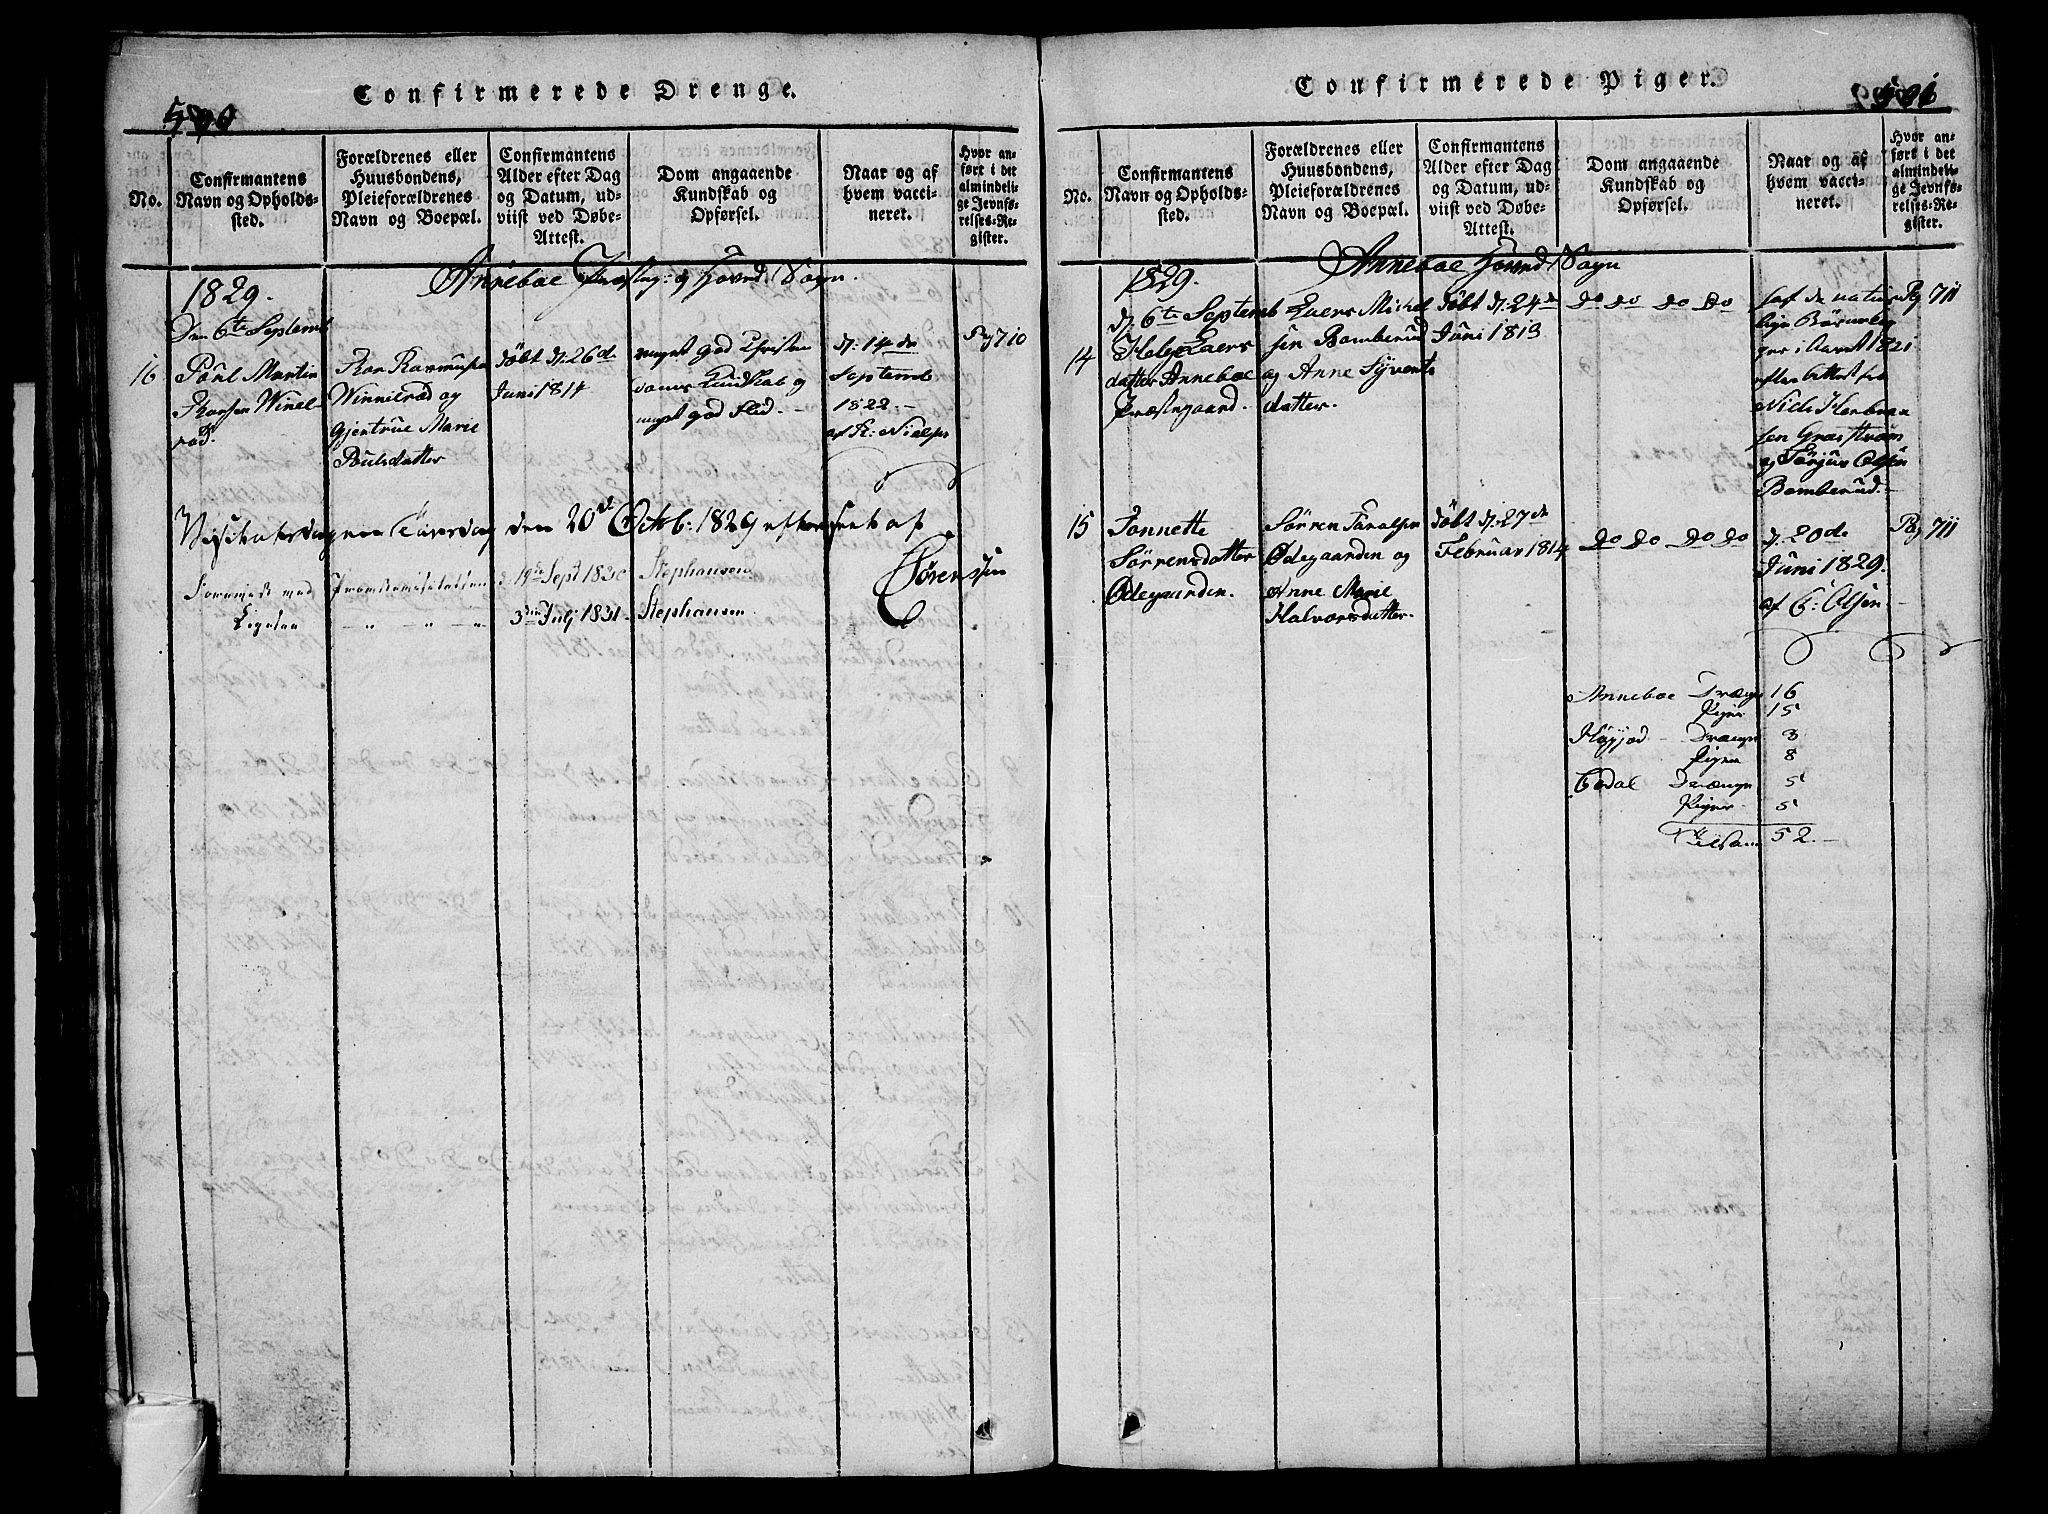 Confirmerede Drenge.
500
No.
Confirmantens
Navn og Opholds-
sted.
Forældrenes eller
Huusbondens,
Pleieforældrenes
Navn og Boepæl.
Confirmantens
Alder efter Dag
og Datum, ud-
viist ved Døbe-
Attest.
Dom angaaende
Kundskab og
Opførsel.
Naar og af
hvem vacci-
neret.
Hvor an-
ført i det
almindeli-
ge Jevnfø-
relses-Re-
gister.
1829.
Anneboe Præsteg: og Hoved Sogn.
Den 6te Septemb
16
Poul Martin
Winel-
rød.
Rasmusen
Winnilrød og
Gjertrue Marie
Poulsdatter
døbt d. 26de
Juni 1814
meget god Christen
doms Kundskab og
meget god Flid.
d: 14de
Septemb
1822.
af R: Nielsen
Pag 710
den 20de Octob: 1829 efterseet af
Sørenssen
d. 19de Sept 1830 Stephansen
3die July 1831. Stephansen
Confirmerede Piger.
501
No.
Confirmantens
Navn og Opholds-
sted.
Forældrenes eller
Huusbondens,
Pleieforældrenes
Navn og Boepæl.
Confirmantens
Alder efter Dag
og Datum, ud-
viist ved Døbe-
Attest.
Dom angaaende
Kundskab og
Opførsel.
Naar og af
hvem vacci-
neret.
Hvor an-
ført i det
almindeli-
ge Jevnfø-
relses-Re-
gister.
1829.
Anneboe Hoved Sogn
d. 6te Septemb
14
Helge Laers
datter Anneboe
Præstegaard.
Laers Michel
sen Bomberud
og Anne Syverts
datter.
døbt d. 24de
Juni 1813
do do do do
haf de natur
lige Børnekop
per i Aaret 1821
efter Attest fra
Niels Herbran
sen Græsstrøm
og Tørgus Olsen
Bomberud.
Pag 711
15
Tonnette
Sørrensdatter
Ødegaarden.
Sørren Taralsen
Ødegaarden og
Anne Marie
Halvorsdatter.
døbt d. 27de
Februar 1814
do do do do
d. 20de
Juni 1829.
af C: Olsen.
Pag 711
Anneboe Drænge 16
Piger 15
Drænge 3
Piger 8
Drænge 5
Piger 5
52.